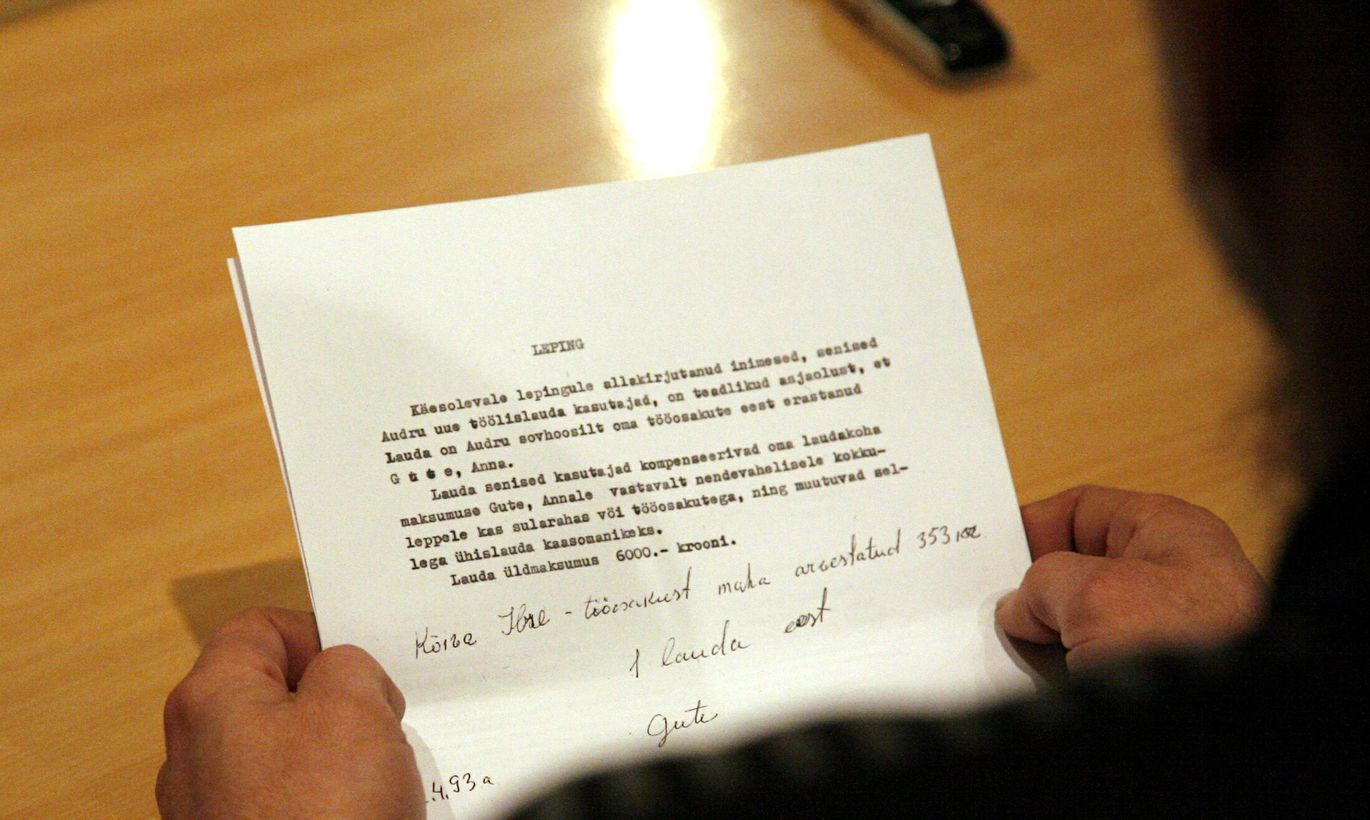 LEPING
Käesolevale lepingule allakirjutanud inimesed, senised
Audru uue töölislauda kasutajad, on teadlikud asjaolust, et
Lauda on Audru sovhoosilt oma tööosakute eest erastanud
G u t e, Anna.
Lauda senised kasutajad kompenseerivad oma laudakoha
maksumuse Gute, Annale vastavalt nendevahelisele kokku-
leppele kas sularahas või tööosakutega, ning muutuvad sel-
lega ühislauda kaasomanikeks.
Lauda üldmaksumus 6000.- krooni.
- tööosakust maha arvestatud 353
1 lauda eest
Gute
.4.93 a